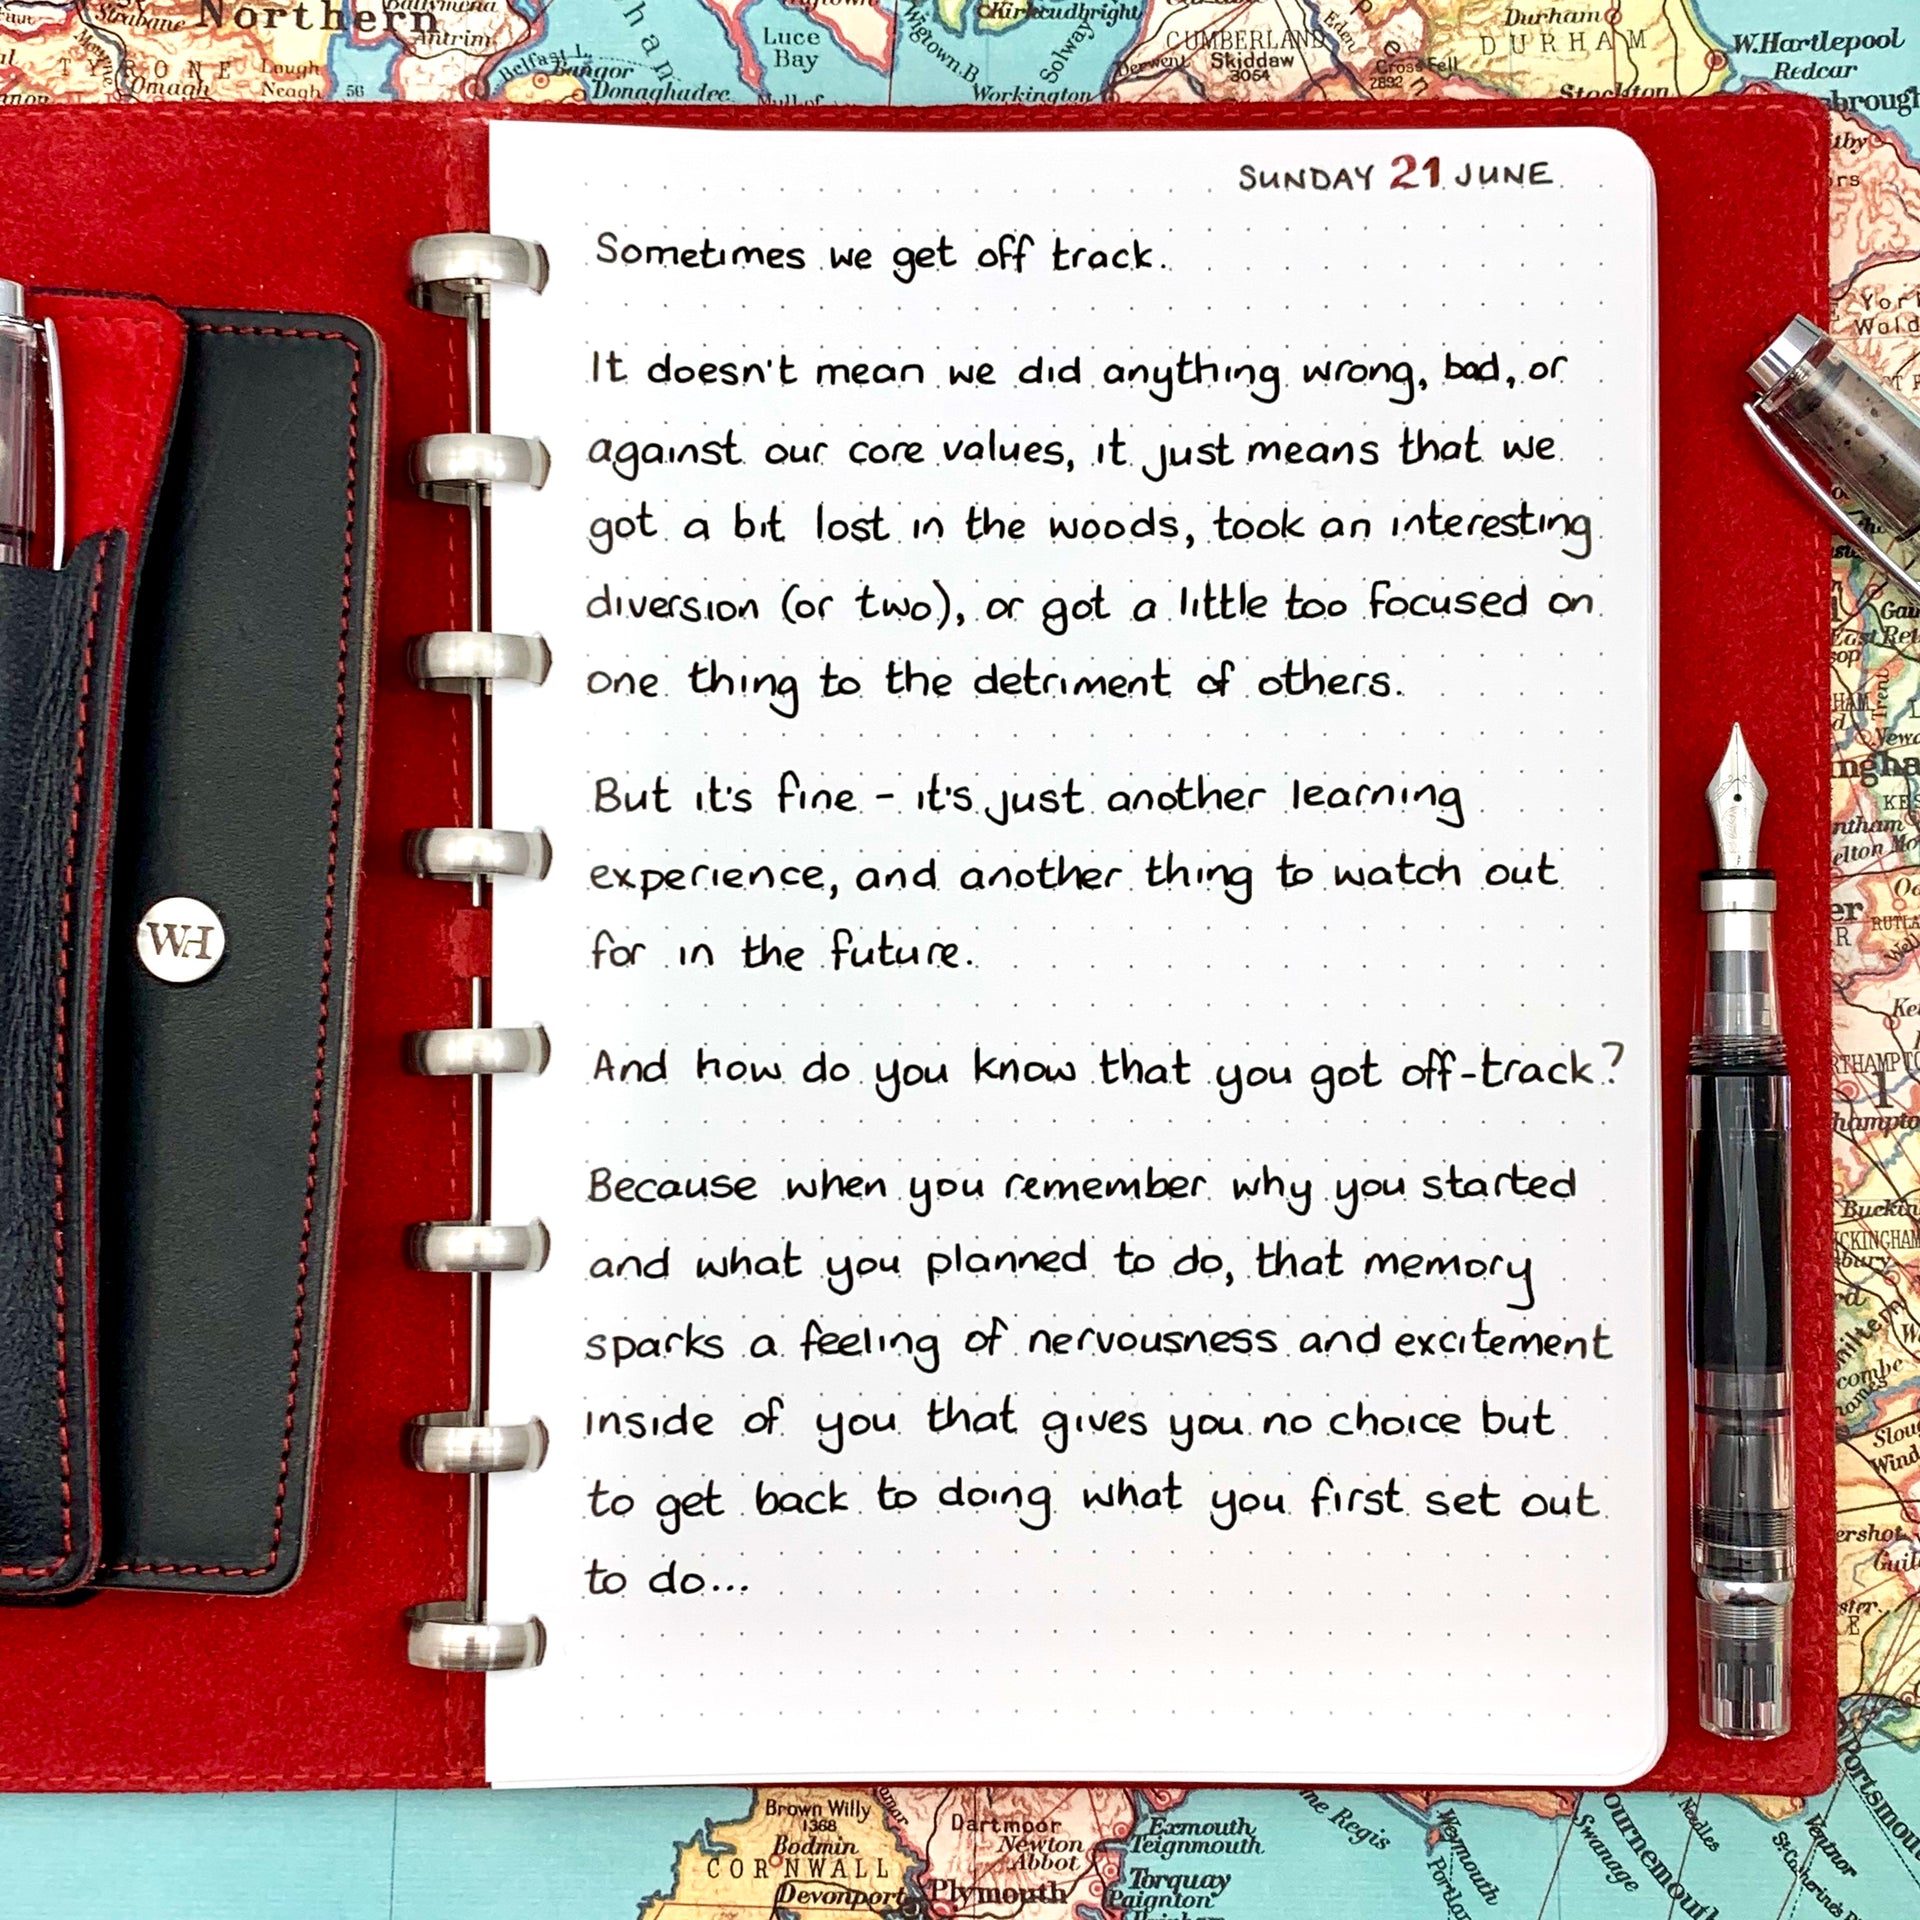 Strabane
Northern
Ballymena
Antrim
T Y R O N E
Omagh
Lough
Neagh
56
Belfast L.
Bangor
Donaghadee
Mull of
Luce
Bay
Wigtown B.
Kirkcudbright
Solway
Workington
CUMBERLAND
Derwent
Skiddaw
3054
Eden
Cross Fell
2892
Durham
D U R H A M
Stockton
W.Hartlepool
Redcar
SUNDAY 21 JUNE
Sometimes we get off track.
It doesn't mean we did anything wrong, bad, or
against our core values, it just means that we
got a bit lost in the woods, took an interesting
diversion (or two), or got a little too focused on
one thing to the detriment of others.
But it's fine - it's just another learning
experience, and another thing to watch out
for in the future.
And how do you know that you got off-track?
Because when you remember why you started
and what you planned to do, that memory
sparks a feeling of nervousness and excitement
inside of you that gives you no choice but
to get back to doing what you first set out
to do...
WH
Trent
Brown Willy
1368
Bodmin
CORNWALL
Devonport
Dartmoor
Newton
Abbot
Plymouth
Exmouth
Teignmouth
Torquay
Paignton
Regis
Weymouth
Swanage
Needles
Ventnor
Portsmou